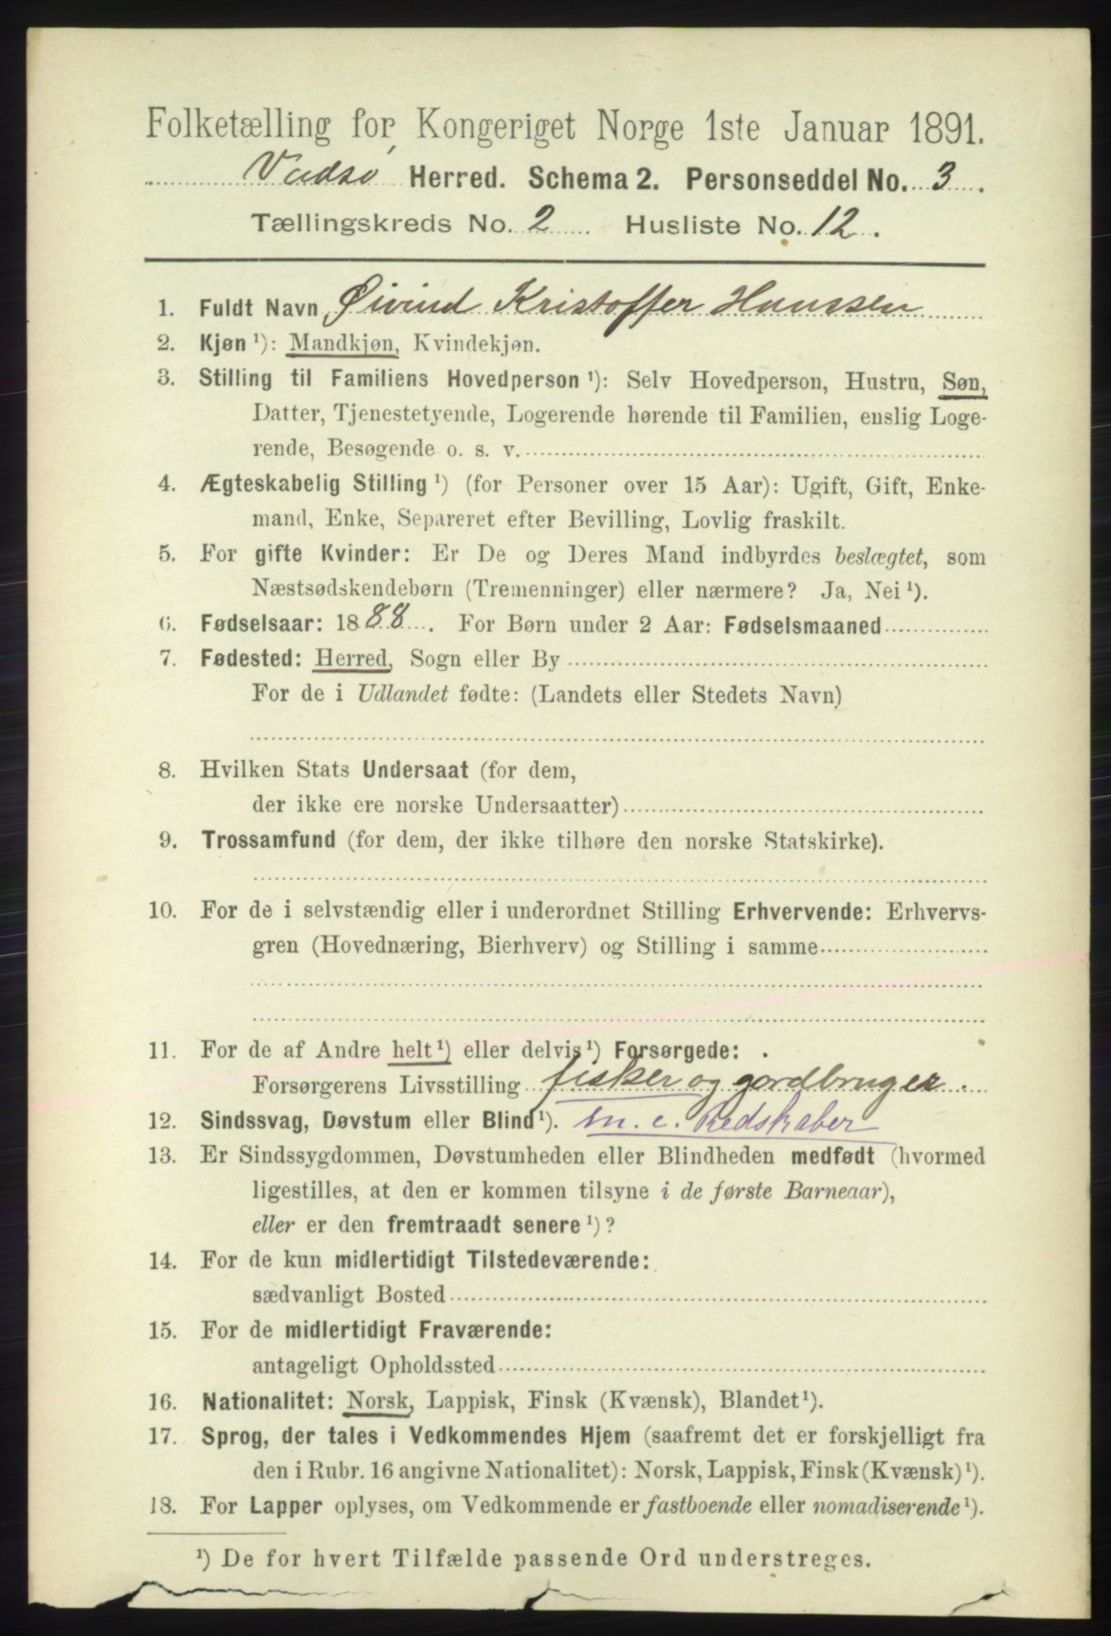 Folketælling for Kongeriget Norge 1ste Januar 1891.
Vadsø Herred. Schema 2. Personseddel No. 3.
Tællingskreds No. 2 Husliste No. 12.
1. Fuldt Navn Øivind Kristoffer Hanssen
2. Kjøn ¹): Mandkjøn, Kvindekjøn.
3. Stilling til Familiens Hovedperson ¹): Selv Hovedperson, Hustru, Søn,
Datter, Tjenestetyende, Logerende hørende til Familien, enslig Loge-
rende, Besøgende o. s. v.
4. Ægteskabelig Stilling ¹) (for Personer over 15 Aar): Ugift, Gift, Enke-
mand, Enke, Separeret efter Bevilling, Lovlig fraskilt.
5. For gifte Kvinder: Er De og Deres Mand indbyrdes beslægtet, som
Næstsødskendebørn (Tremenninger) eller nærmere? Ja, Nei ¹).
6. Fødselsaar: 1888. For Børn under 2 Aar: Fødselsmaaned
7. Fødested: Herred, Sogn eller By
For de i Udlandet fødte: (Landets eller Stedets Navn)
8. Hvilken Stats Undersaat (for dem,
der ikke ere norske Undersaatter)
9. Trossamfund (for dem, der ikke tilhøre den norske Statskirke).
10. For de i selvstændig eller i underordnet Stilling Erhvervende: Erhvervs-
gren (Hovednæring, Bierhverv) og Stilling i samme
11. For de af Andre helt ¹) eller delvis ¹) Forsørgede:
Forsørgerens Livsstilling fisker og gardbruger.
12. Sindssvag, Døvstum eller Blind ¹). m. e. Redskaber
13. Er Sindssygdommen, Døvstumheden eller Blindheden medfødt (hvormed
ligestilles, at den er kommen tilsyne i de første Barneaar),
eller er den fremtraadt senere ¹)?
14. For de kun midlertidigt Tilstedeværende:
sædvanligt Bosted
15. For de midlertidigt Fraværende:
antageligt Opholdssted
16. Nationalitet: Norsk, Lappisk, Finsk (Kvænsk), Blandet ¹).
17. Sprog, der tales i Vedkommendes Hjem (saafremt det er forskjelligt fra
den i Rubr. 16 angivne Nationalitet): Norsk, Lappisk, Finsk (Kvænsk) ¹).
18. For Lapper oplyses, om Vedkommende er fastboende eller nomadiserende ¹).
¹) De for hvert Tilfælde passende Ord understreges.